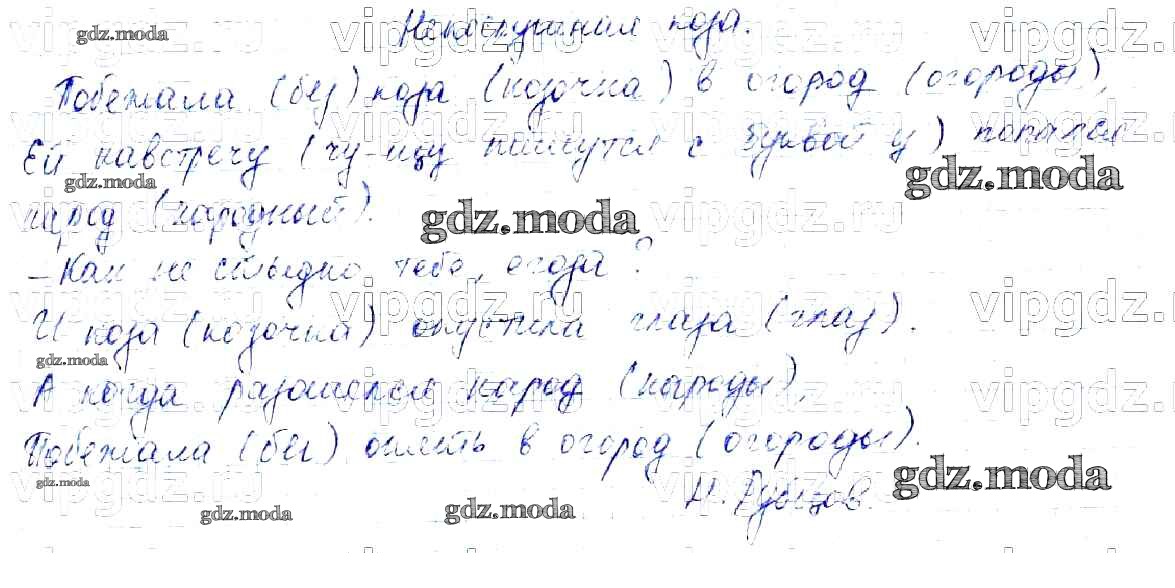 Непослушная коза.
Побежала (бег) коза (козочка) в огород (огороды),
Ей навстречу (чу-щу пишутся с буквой у) попался
народ (народный).
– Как не стыдно тебе, егоза?
И коза (козочка) опустила глаза (глаз).
А когда разошёлся народ (народы),
Побежала (бег) опять в огород (огороды).
Н. Рубцов.